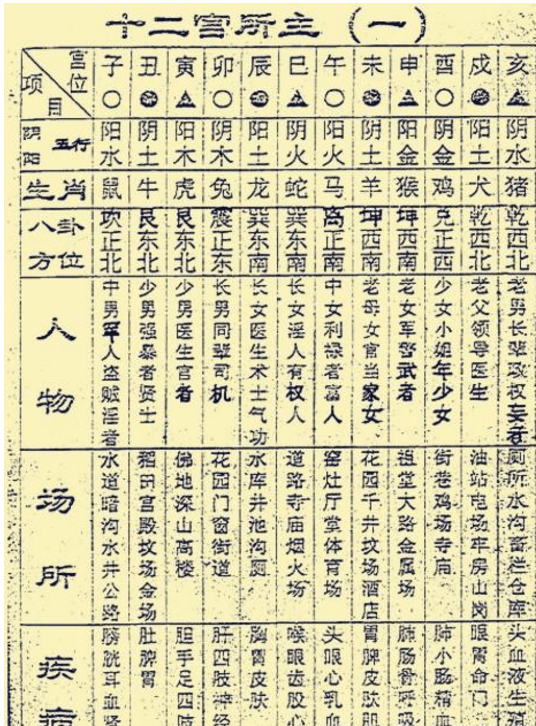 十二宫所主（一）
宫位 项目 子 丑 寅 卯 辰 巳 午 未 申 酉 戌 亥
阴阳五行 阳水 阴土 阳木 阴木 阳土 阴火 阳火 阴土 阳金 阴金 阳土 阴水
生肖 鼠 牛 虎 兔 龙 蛇 马 羊 猴 鸡 犬 猪
八卦方位 坎正北 艮东北 艮东北 震正东 巽东南 巽东南 离正南 坤西南 坤西南 兑正西 乾西北 乾西北
人物
中男罕人盗贼淫者
少男强暴者贤士
少男医生官者
长男同辈司机
长女医生术士气功
长女淫人有权人
中女利禄者富人
老母女官当家女
老女军警武者
少女小姐年少女
老父领导医生
老男长辈政权妄者
场所
水道暗沟水井公路
稻田宫殿坟场金场
佛地深山高楼
花园门窗街道
水库井池沟厕
道路寺庙烟火场
窑灶厅堂体育场
花园千井坟场酒店
祖堂大路金属场
街巷鸡场寺庙
油站电场牢房山岗
厕所水沟畜栏仓库
疾病
膀胱耳血肾
肚脾胃
胆手足四肢
肝四肢神经
胸胃皮肤
喉眼齿股心
头眼心乳血
胃脾皮肤胆
肺肠骨呼吸
肺小肠精血
眼胃命门
头血液生殖